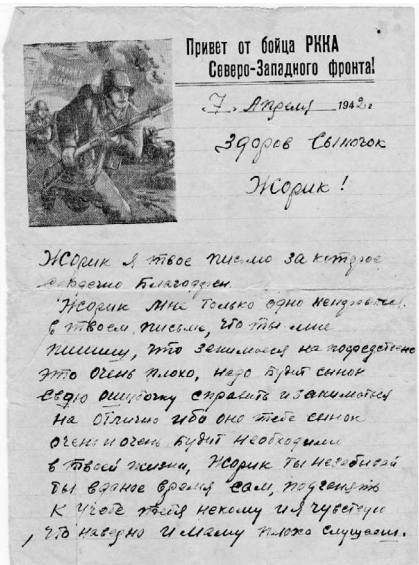 Привет от бойца РККА
Северо-Западного фронта!
7. Апреля 1942 г
Здоров Сыночок
Жорик!
Жорик я твое письмо за которое
сердечно благодарен.
Жорик мне только одно
в твоем письме, что ты мне
пишиш, что занимаеся на посредствено
это очень плохо, надо будит сынок
свою ошибочку справить и заниматься
на отлично ибо оно тебе сынок
очень и очень будит необходимо
в твоей жизни, Жорик ты незабывай
ты вданое время сам, подгонять
к учебе тебя некому и я чувствую
, что наверно и маму плохо слушаеш.